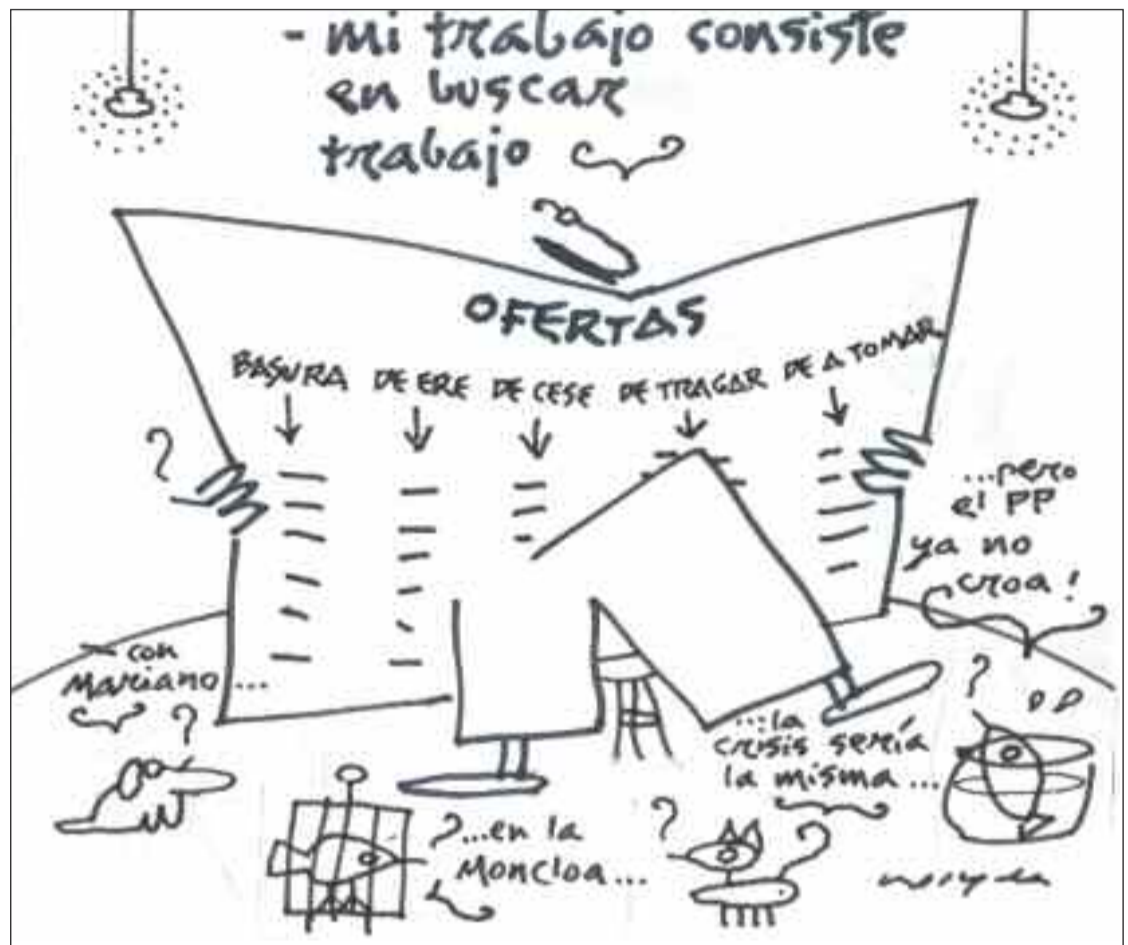 - mi trabajo consiste
en buscar
trabajo
OFERTAS
BASURA DE ERE DE CESE DE TRAGAR DE A TOMAR
...pero
el PP
ya no
croa!
- con
Mariano...
...en la
Moncloa...
...la
crisis sería
la misma...